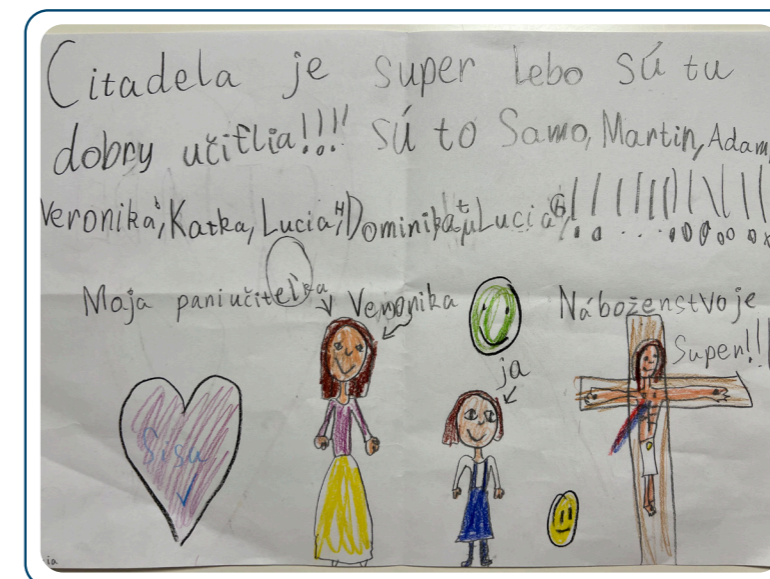 Citadela je super lebo sú tu
dobry učitlia!!!! sú to Samo, Martin, Adam,
Veronika, Katka, Lucia H, Dominika, Lucia
Moja pani učiteľka Veronika
Náboženstvo je
Super!!!
ja